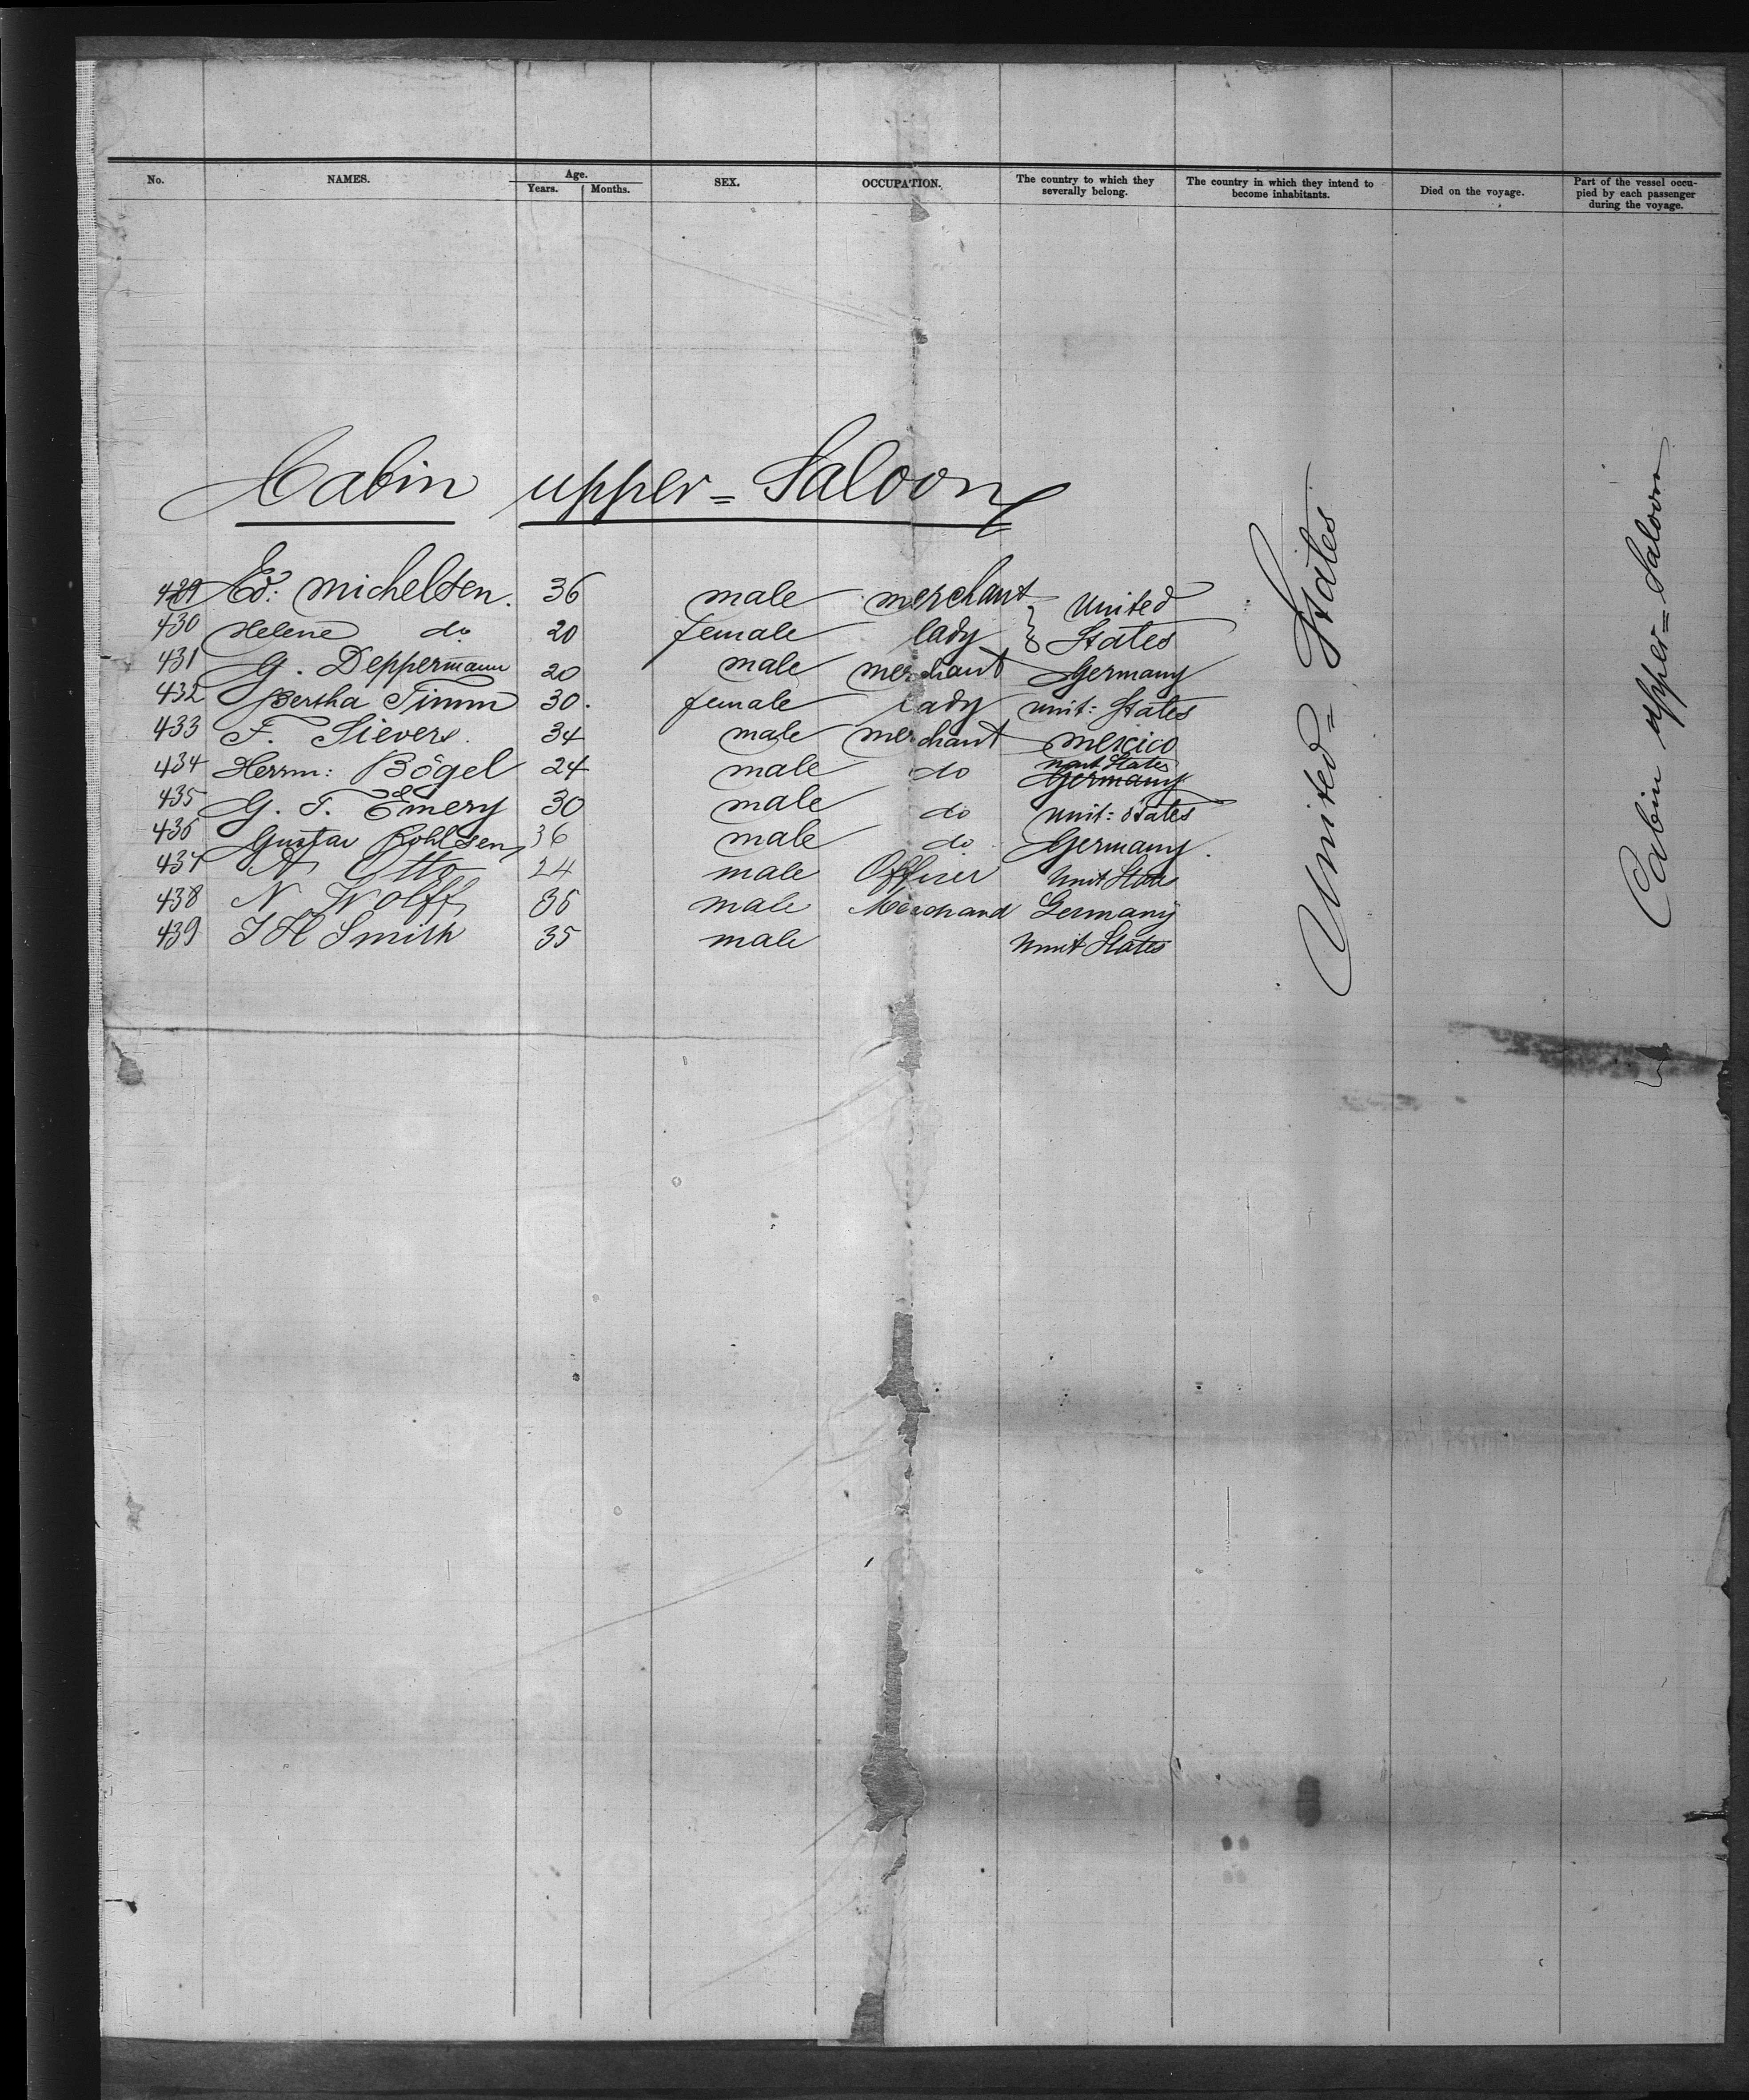 No. NAMES. Age. Years. Months. SEX. OCCUPATION. The country to which they severally belong. The country in which they intend to become inhabitants. Died on the voyage. Part of the vessel occupied by each passenger during the voyage.
Cabin upper=Saloon
429 Ed: Michelsen. 36 male merchant United
430 Helene do 20 female lady States
431 G. Deppermann 20 male merchant Germany
432 Bertha Timm 30. female Lady unit: States
433 F. Sievers. 34 male merchant mexico
434 Herrm: Bögel 24 male do unit States Germany
435 G. T. Emery 30 male do unit: States
436 Gustav 36 male do. Germany.
437 Otto 24 male Officer Unit States
438 N Wolff 36 male Merchand Germany
439 J H Smith 35 male Unit States
United= States
Cabin upper= Saloon